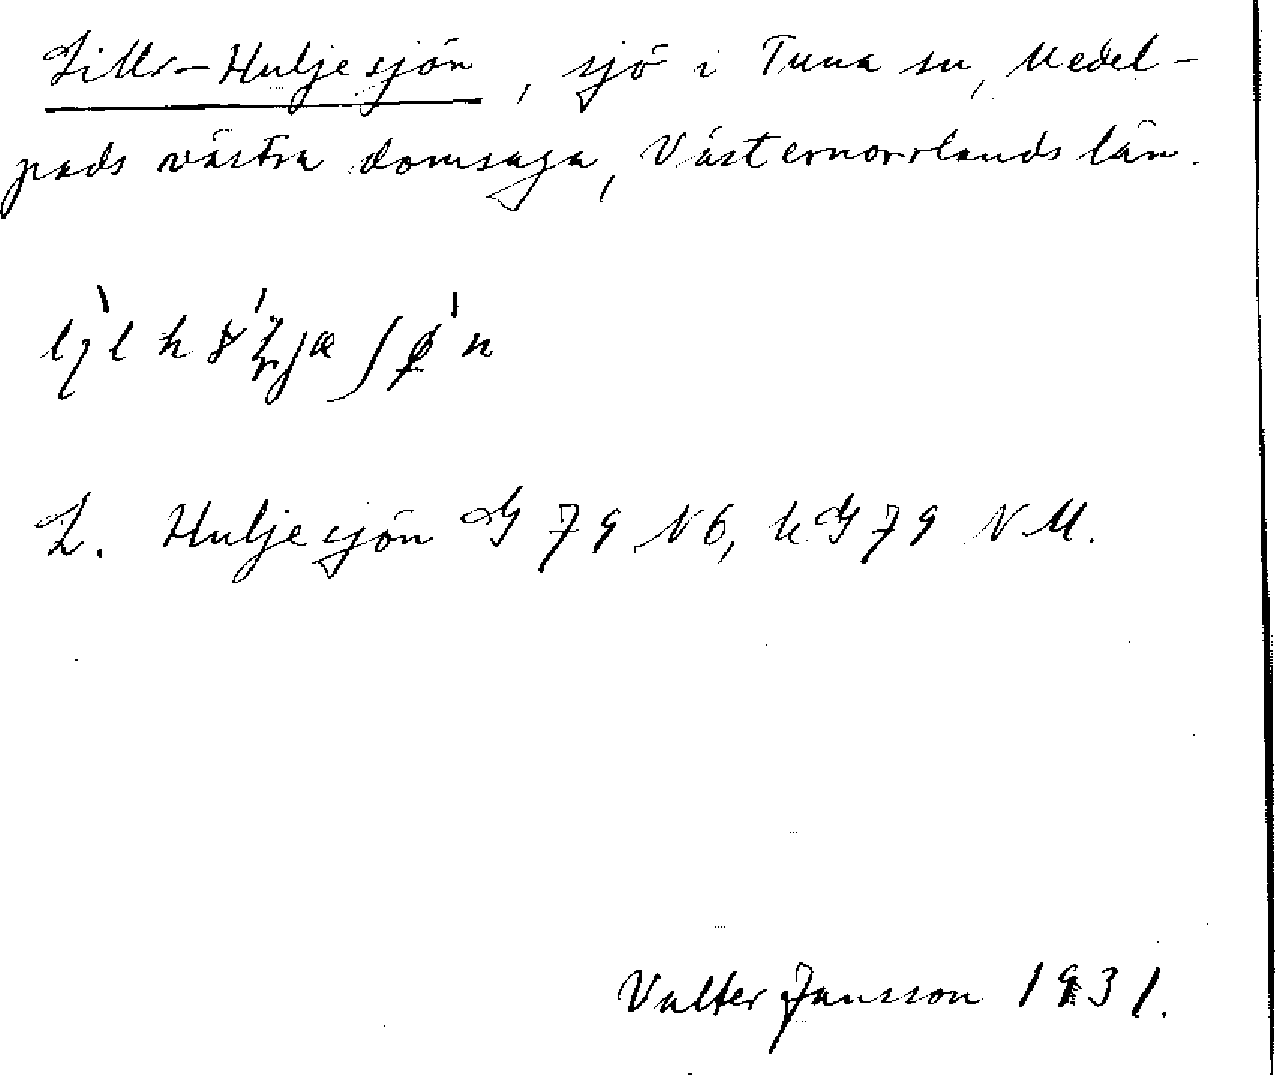 Lill-Huljesjön, sjö i Tuna sn, Medel-
pads västra domsaga, Västernorrlands län.
L. Huljesjön G 79 NÖ, kG 79 NM.
Valter Jansson 1931.